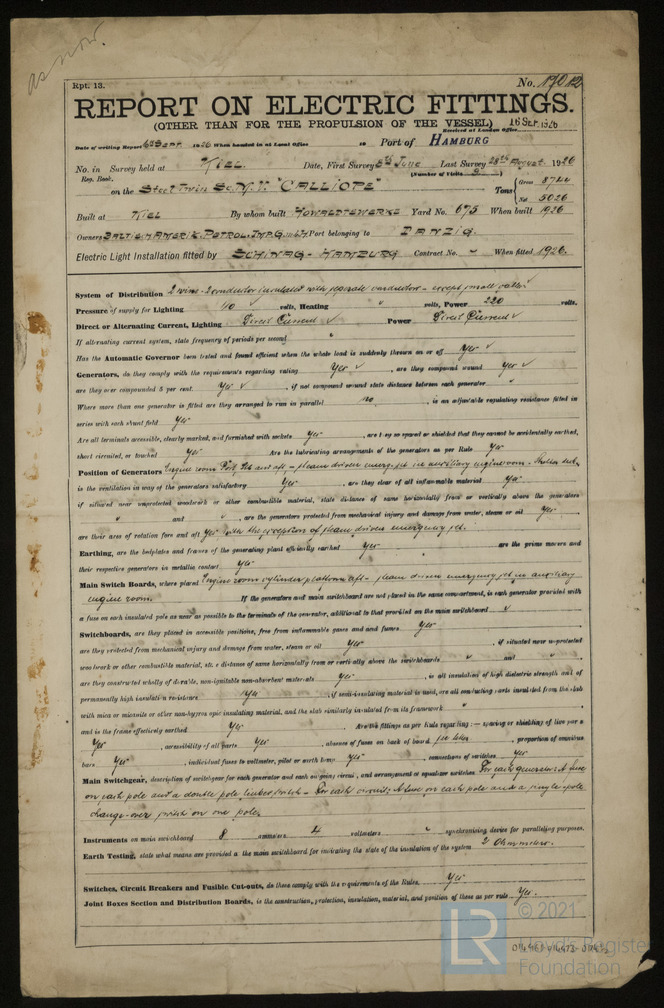 as now.
Rpt. 13.
No. 17012
REPORT ON ELECTRIC FITTINGS.
(OTHER THAN FOR THE PROPULSION OF THE VESSEL)
16 SEP. 1926
Received at London Office
Date of writing Report 1926 When handed in at Local Office 19 Port of HAMBURG
No. in Survey held at KIEL. Date, First Survey 5th June Last Survey 28th August 1926
Reg. Book. (Number of Visits 9)
on the Steel Twin Sc. M.V. "CALLIOPE" Tons { Gross 8720
Net 5026
Built at KIEL By whom built HOWALDTSWERKE Yard No. 675 When built 1926
Owners BALTIC-AMERIK. PETROL. IMP. G.m.b.H. Port belonging to DANZIG.
Electric Light Installation fitted by SCHINAG-HAMBURG Contract No. - When fitted 1926.
System of Distribution 2 wire - 2 conductor insulated with separate conductor - except small cable ✓
Pressure of supply for Lighting 110 volts, Heating " volts, Power 220 volts.
Direct or Alternating Current, Lighting Direct Current ✓ Power Direct Current ✓
If alternating current system, state frequency of periods per second "
Has the Automatic Governor been tested and found efficient when the whole load is suddenly thrown on or off yes ✓
Generators, do they comply with the requirements regarding rating yes ✓, are they compound wound yes ✓
are they over compounded 5 per cent. yes ✓, if not compound wound state distance between each generator "
Where more than one generator is fitted are they arranged to run in parallel no, is an adjustable regulating resistance fitted in
series with each shunt field yes
Are all terminals accessible, clearly marked, and furnished with sockets yes, are they so spaced or shielded that they cannot be accidentally earthed,
short circuited, or touched yes Are the lubricating arrangements of the generators as per Rule yes
Position of Generators Engine room Port side and aft, - steam driven emerg. set in auxiliary engine room.
is the ventilation in way of the generators satisfactory yes, are they clear of all inflammable material yes
if situated near unprotected woodwork or other combustible material, state distance of same horizontally from or vertically above the generators
" and ", are the generators protected from mechanical injury and damage from water, steam or oil yes
are their axes of rotation fore and aft yes with the exception of steam driven emergency set.
Earthing, are the bedplates and frames of the generating plant efficiently earthed yes are the prime movers and
their respective generators in metallic contact yes
Main Switch Boards, where placed Engine room cylinder platform aft - steam driven emergency set in auxiliary
engine room. If the generators and main switchboard are not placed in the same compartment, is each generator provided with
a fuse on each insulated pole as near as possible to the terminals of the generator, additional to that provided on the main switchboard ✓
Switchboards, are they placed in accessible positions, free from inflammable gases and acid fumes yes
are they protected from mechanical injury and damage from water, steam or oil yes, if situated near unprotected
woodwork or other combustible material, state distance of same horizontally from or vertically above the switchboards " and "
are they constructed wholly of durable, non-ignitable non-absorbent materials yes, is all insulation of high dielectric strength and of
permanently high insulation resistance yes, if semi-insulating material is used, are all conducting parts insulated from the slab
with mica or micanite or other non-hygroscopic insulating material, and the slab similarly insulated from its framework "
and is the frame effectively earthed yes. Are the fittings as per Rule regarding:— spacing or shielding of live parts
yes, accessibility of all parts yes, absence of fuses on back of board, proportion of omnibus
bars yes, individual fuses to voltmeter, pilot or earth lamp yes, connections of switches yes
Main Switchgear, description of switchgear for each generator and each outgoing circuit, and arrangement of equaliser switches For each generator: A fuse
on each pole and a double pole linked switch - For each circuit: A fuse on each pole and a single pole
change-over switch on one pole.
Instruments on main switchboard 8 ammeters 4 voltmeters " synchronising device for paralleling purposes.
Earth Testing, state what means are provided at the main switchboard for indicating the state of the insulation of the system 2 Ohmmeter.
Switches, Circuit Breakers and Fusible Cut-outs, do these comply with the requirements of the Rules yes
Joint Boxes Section and Distribution Boards, is the construction, protection, insulation, material, and position of these as per rule yes.
LR
© 2021
Lloyd's Register
Foundation